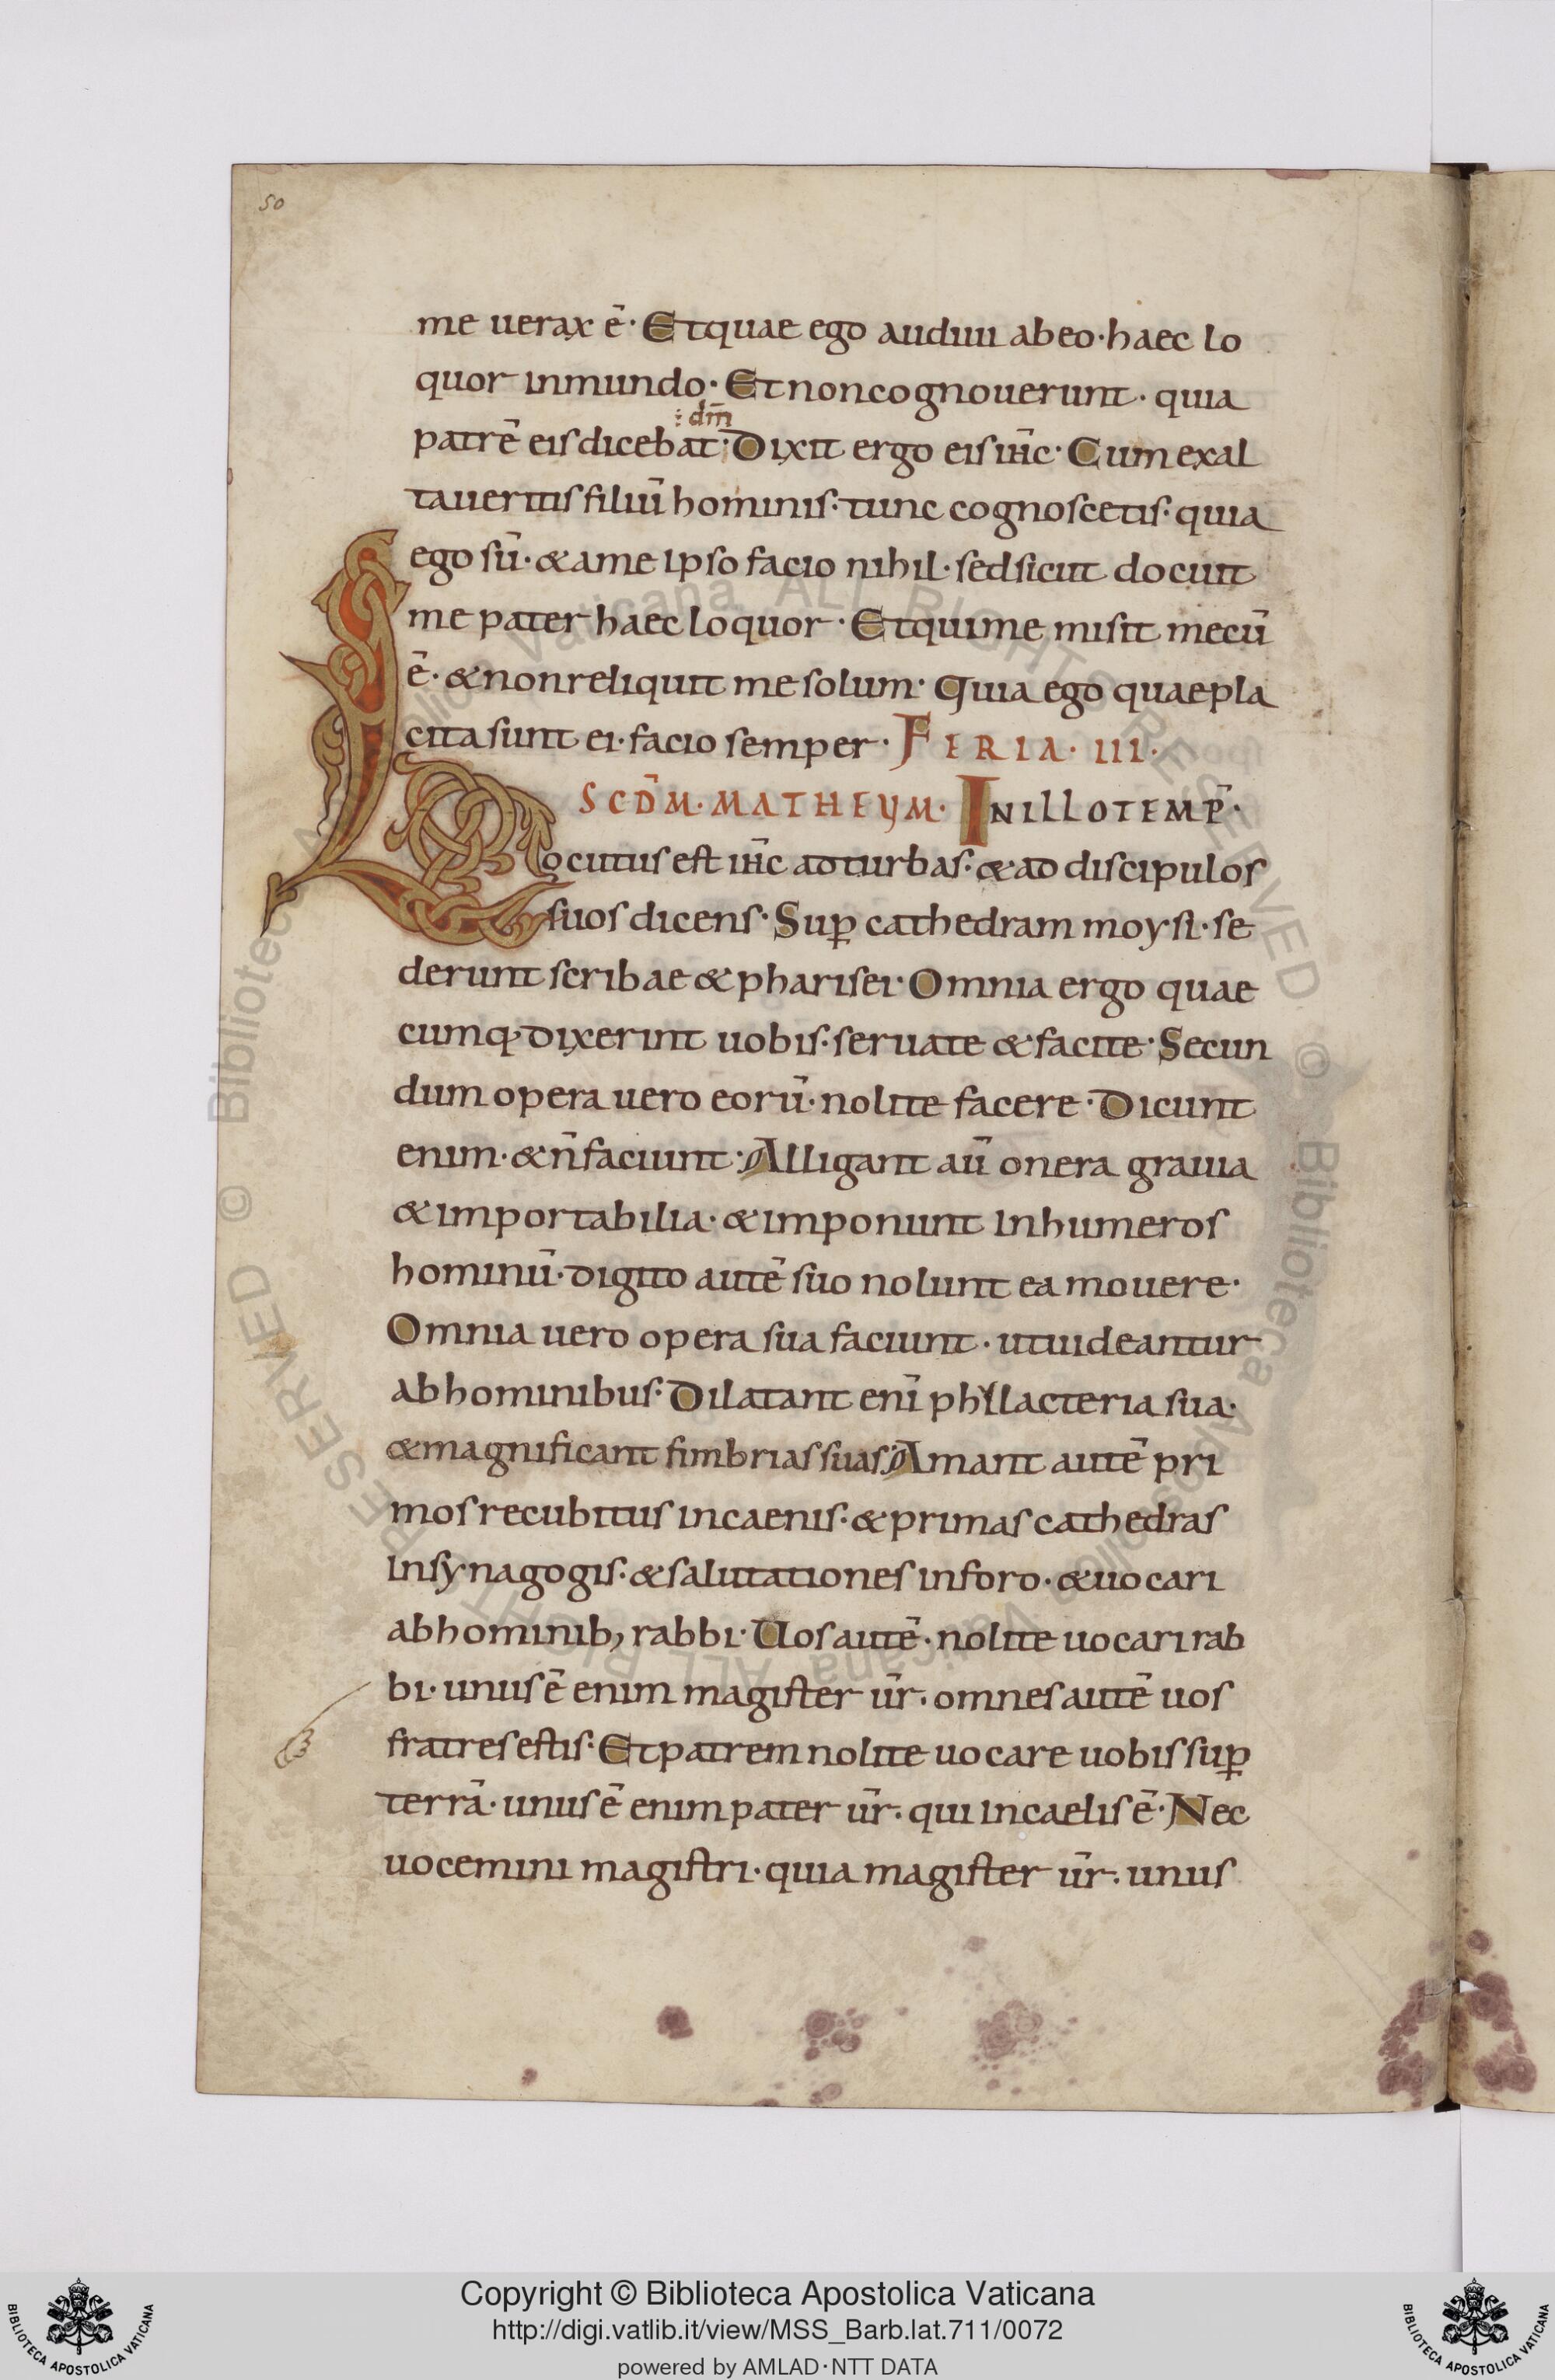 50
me uerax ē· Et quae ego audiui ab eo· haec lo
quor in mundo· Et non cognouerunt· quia
:· dm̄
patrē eis dicebat:· Dixit ergo eis ih̄c· Cum exal
taueritis filiū hominis· tunc cognoscetis· quia
ego sū· & a me ipso facio nihil· sed sicut docuit
me pater haec loquor· Et qui me misit mecū
ē· & non reliquit me solum· Quia ego quae pla
cita sunt ei· facio semper· FERIA· III·
SCD̄M· MATHEUM· IN ILLO TEMP̄·
Locutus est ih̄c ad turbas· & ad discipulos
suos dicens· Suꝑ cathedram moysi· se
derunt scribae & pharisei· Omnia ergo quae
cumq· dixerint uobis· seruate & facite· Secun
dum opera uero eorū· nolite facere· Dicunt
enim· & n̄ faciunt· Alligant aū onera grauia
& importabilia· & imponunt in humeros
hominū· digito autē suo nolunt ea mouere·
Omnia uero opera sua faciunt· ut uideantur
ab hominibus· Dilatant enī phylacteria sua·
& magnificant fimbrias suas· Amant autē pri
mos recubitus in caenis· & primas cathedras
in synagogis· & salutationes in foro· & uocari
ab hominib, rabbi· Uos autē· nolite uocari rab
bi· unus ē enim magister ūr· omnes autē uos
fratres estis· Et patrem nolite uocare uobis suꝑ
terrā· unus ē enim pater ūr· qui in caelis ē· Nec
uocemini magistri· quia magister ūr· unus
Copyright © Biblioteca Apostolica Vaticana
http://digi.vatlib.it/view/MSS_Barb.lat.711/0072
powered by AMLAD·NTT DATA
BIBLIOTECA APOSTOLICA VATICANA
BIBLIOTECA APOSTOLICA VATICANA